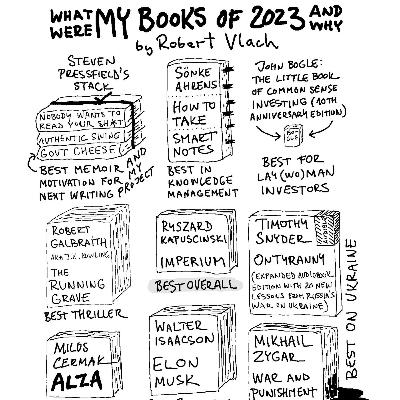 WHAT WERE MY BOOKS OF 2023 AND WHY
by Robert Vlach
STEVEN
PRESSFIELD'S
STACK
NOBODY WANTS TO
READ YOUR SH*T
AUTHENTIC SWING
GOVT CHEESE
BEST MEMOIR AND
MOTIVATION FOR MY
NEXT WRITING PROJECT
SÖNKE
AHRENS
HOW TO
TAKE
SMART
NOTES
BEST IN
KNOWLEDGE
MANAGEMENT
JOHN BOGLE:
THE LITTLE BOOK
OF COMMON SENSE
INVESTING (10TH
ANNIVERSARY EDITION)
BEST FOR
LAY (WO)MAN
INVESTORS
ROBERT
GALBRAITH
AKA J.K. ROWLING
THE
RUNNING
GRAVE
BEST THRILLER
RYSZARD
KAPUSCINSKI
IMPERIUM
BEST OVERALL
TIMOTHY
SNYDER
ON TYRANNY
(EXPANDED AUDIOBOOK
EDITION WITH 20 NEW
LESSONS FROM RUSSIA'S
WAR ON UKRAINE)
BEST ON UKRAINE
MILOS
CERMAK
ALZA
WALTER
ISAACSON
ELON
MUSK
MIKHAIL
ZYGAR
WAR AND
PUNISHMENT